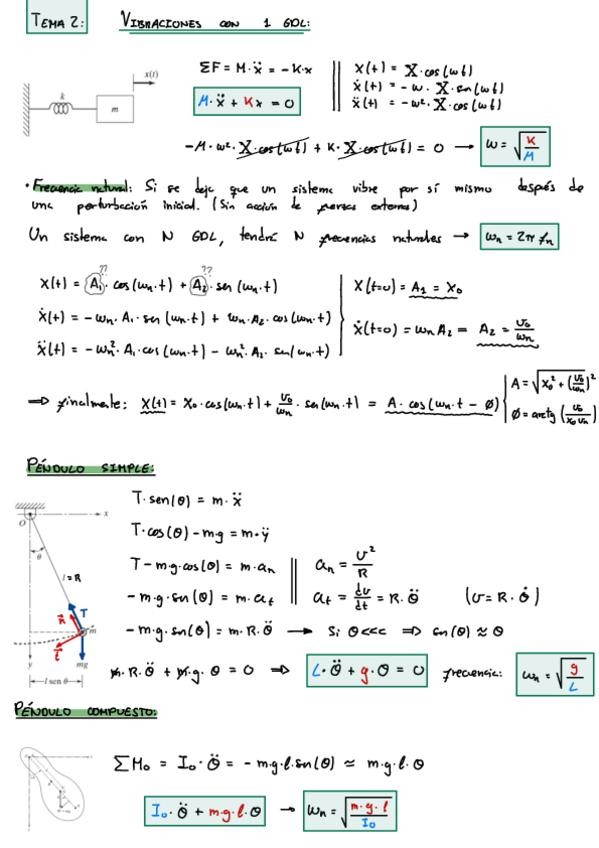 TEMA 2: VIBRACIONES CON 1 GDL:
k m x(t)
ΣF = M·ẍ = -K·x
M·ẍ + Kx = 0
X(t) = X·cos(ωt)
ẋ(t) = -ω·X·sen(ωt)
ẍ(t) = -ω²·X·cos(ωt)
-M·ω²·X·cos(ωt) + K·X·cos(ωt) = 0 → ω = √(K/M)
· Frecuencia natural: Si se deja que un sistema vibre por sí mismo después de
una perturbación inicial. (Sin acción de fuerzas externas)
Un sistema con N GDL, tendrá N frecuencias naturales → ωn = 2π fn
?? ??
X(t) = A₁·cos(ωn·t) + A₂·sen(ωn·t)
ẋ(t) = -ωn·A₁·sen(ωn·t) + ωn·A₂·cos(ωn·t)
ẍ(t) = -ωn²·A₁·cos(ωn·t) - ωn²·A₂·sen(ωn·t)
X(t=0) = A₁ = X₀
ẋ(t=0) = ωn A₂ = A₂ = v₀/ωn
⇒ finalmente: X(t) = X₀·cos(ωn·t) + v₀/ωn·sen(ωn·t) = A·cos(ωn·t - ø)
A = √(X₀² + (v₀/ωn)²
ø = arctg (v₀/X₀ωn)
PÉNDULO SIMPLE:
O x θ l = R T m mg y l sen θ
T·sen(θ) = m·ẍ
T·cos(θ) - m·g = m·ÿ
T - m·g·cos(θ) = m·an
an = v²/R
-m·g·sen(θ) = m·at
at = dv/dt = R·θ̈ (v = R·θ̇)
-m·g·sen(θ) = m·R·θ̈ → Si θ<<< ⇒ sen(θ) ≈ θ
m·R·θ̈ + m·g·θ = 0 ⇒ L·θ̈ + g·θ = 0 frecuencia: ωn = √(g/L)
PÉNDULO COMPUESTO:
ΣMo = Io·θ̈ = -m·g·l·sen(θ) ≈ m·g·l·θ
Io·θ̈ + m·g·l·θ → ωn = √(m·g·l/Io)